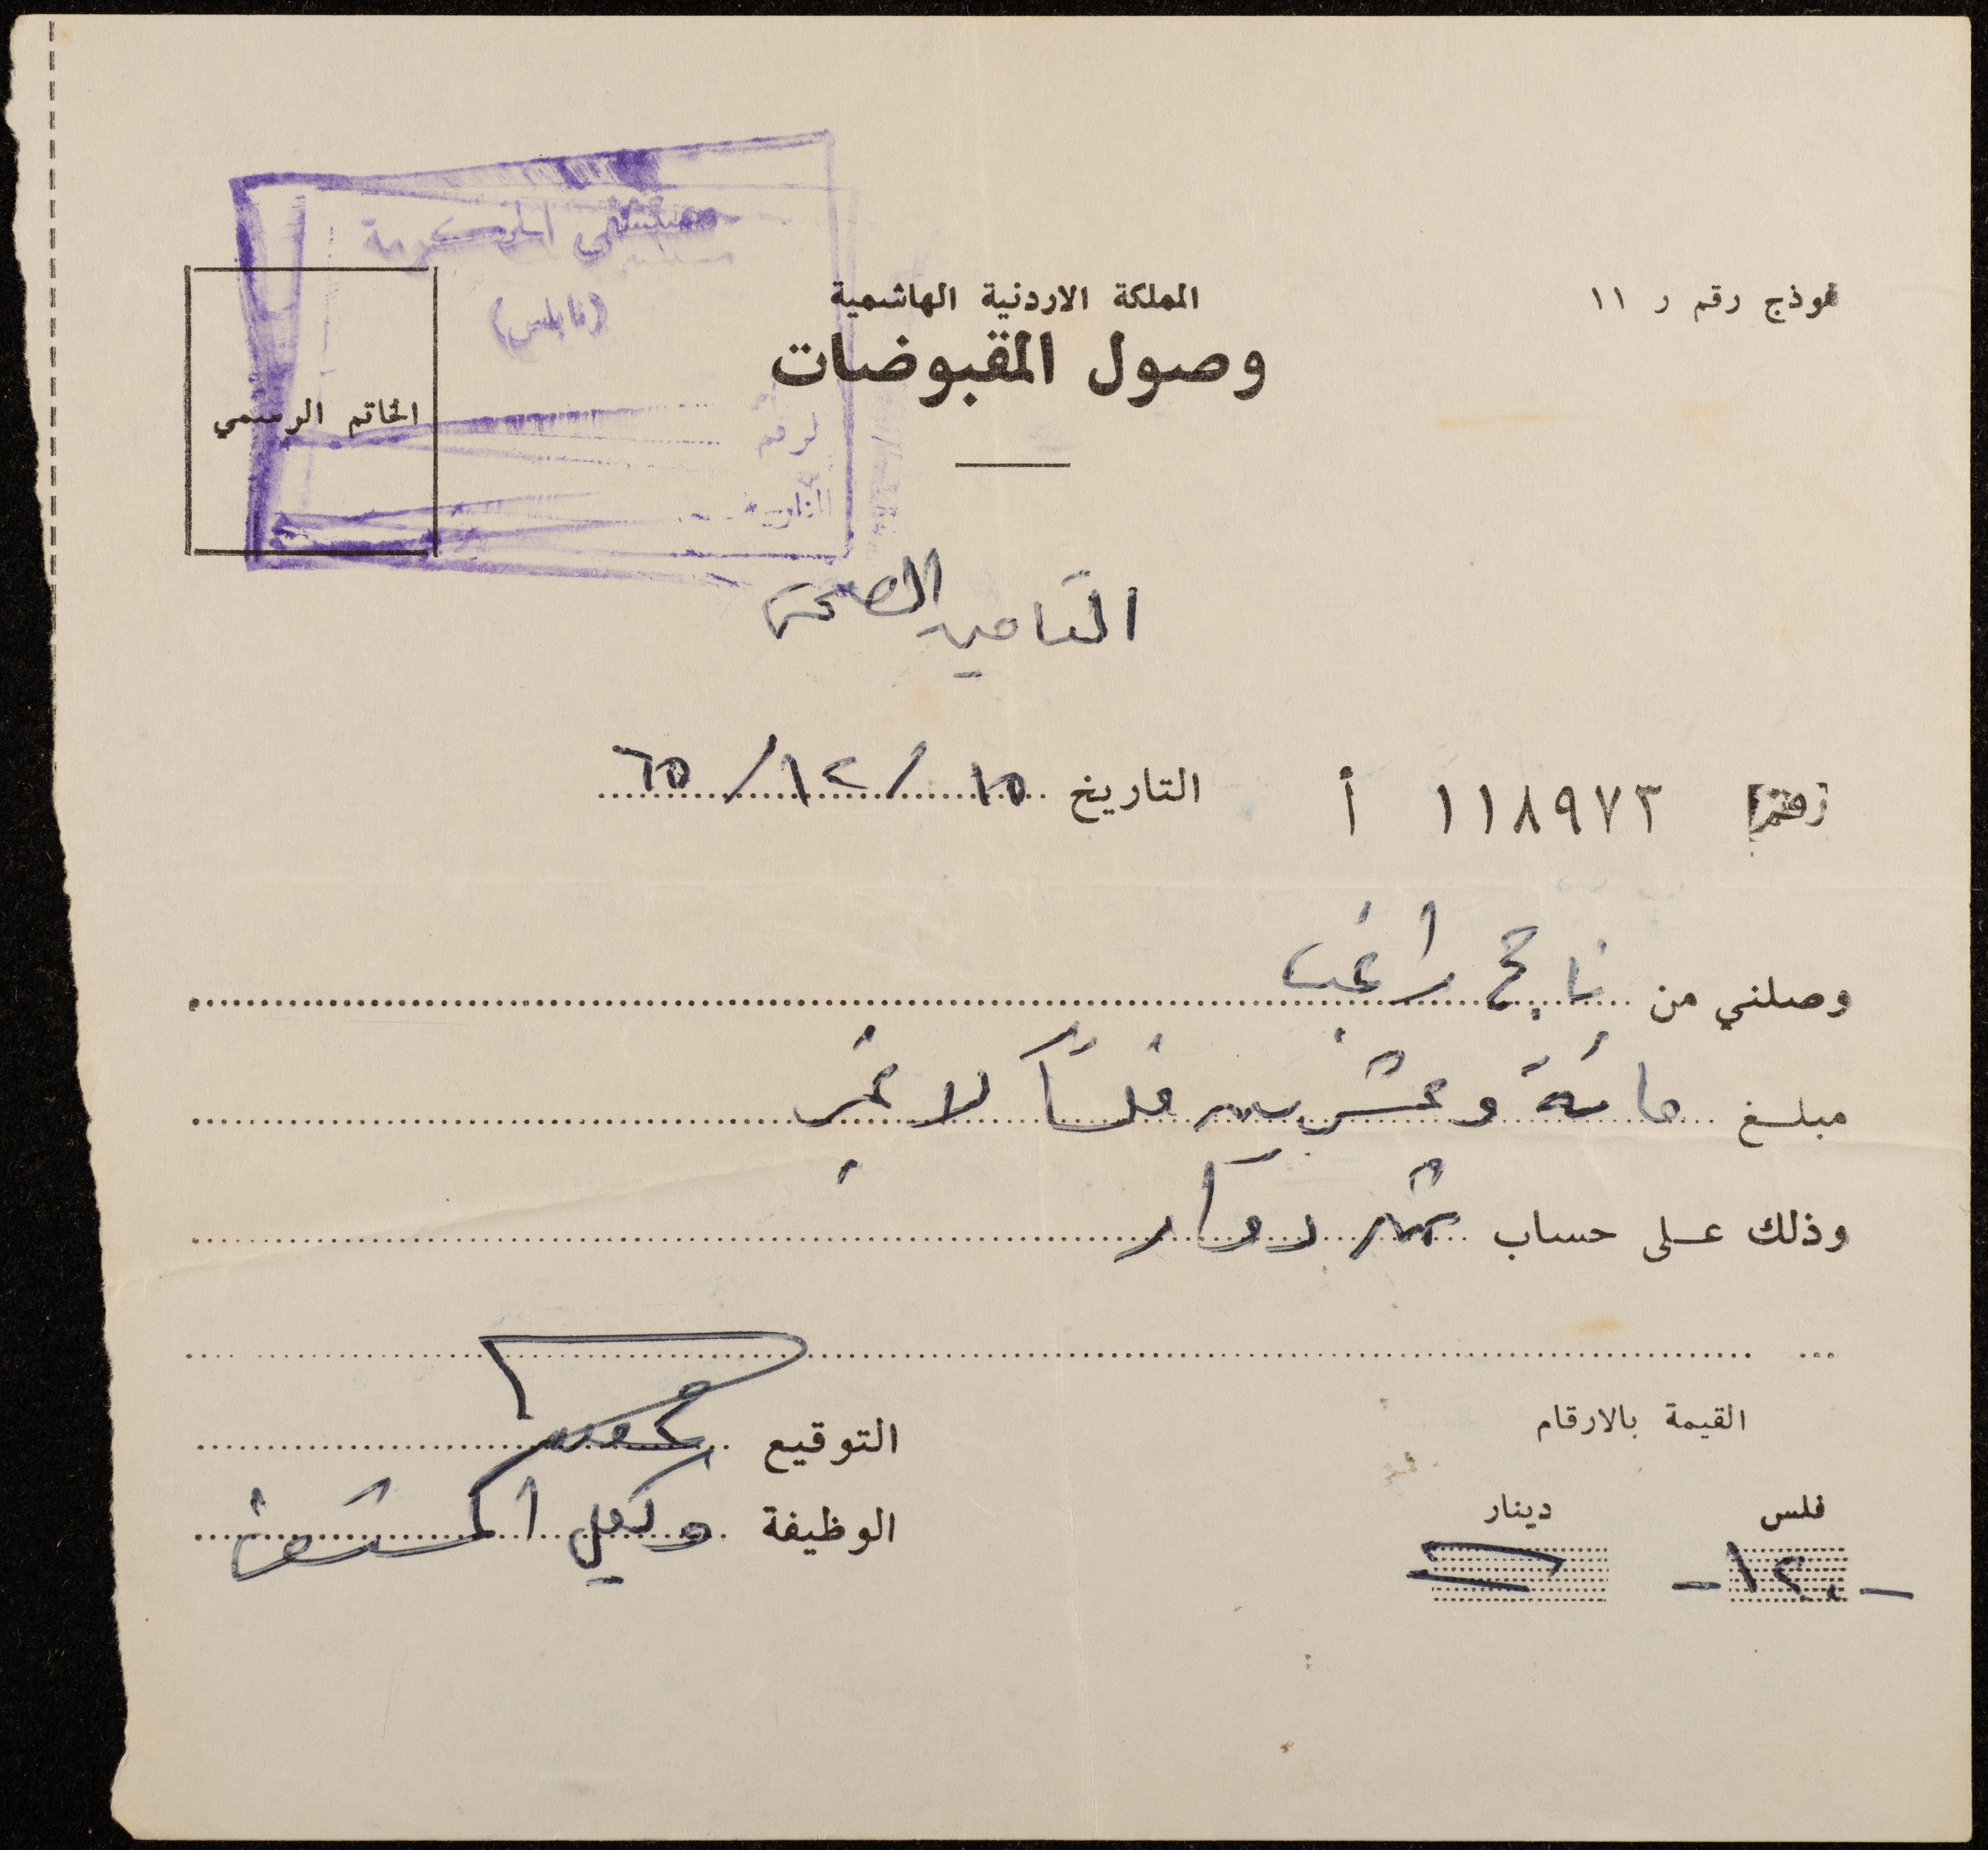 مستشفى الحكومة
(نابلس)
الرقم
التاريخ
نموذج رقم ر ١١
المملكة الاردنية الهاشمية
وصول المقبوضات
الخاتم الرسمي
التامين الصحي
رقم ١١٨٩٧٣ أ
التاريخ ١٥ / ١٢ / ٦٥
وصلني من ناجح راغب
مبلغ مائة وعشرين فلساً لا غير
وذلك على حساب ثمن دواء
القيمة بالارقام
التوقيع
فلس دينار
الوظيفة وكيل المستشفى
- ١٢٠ -